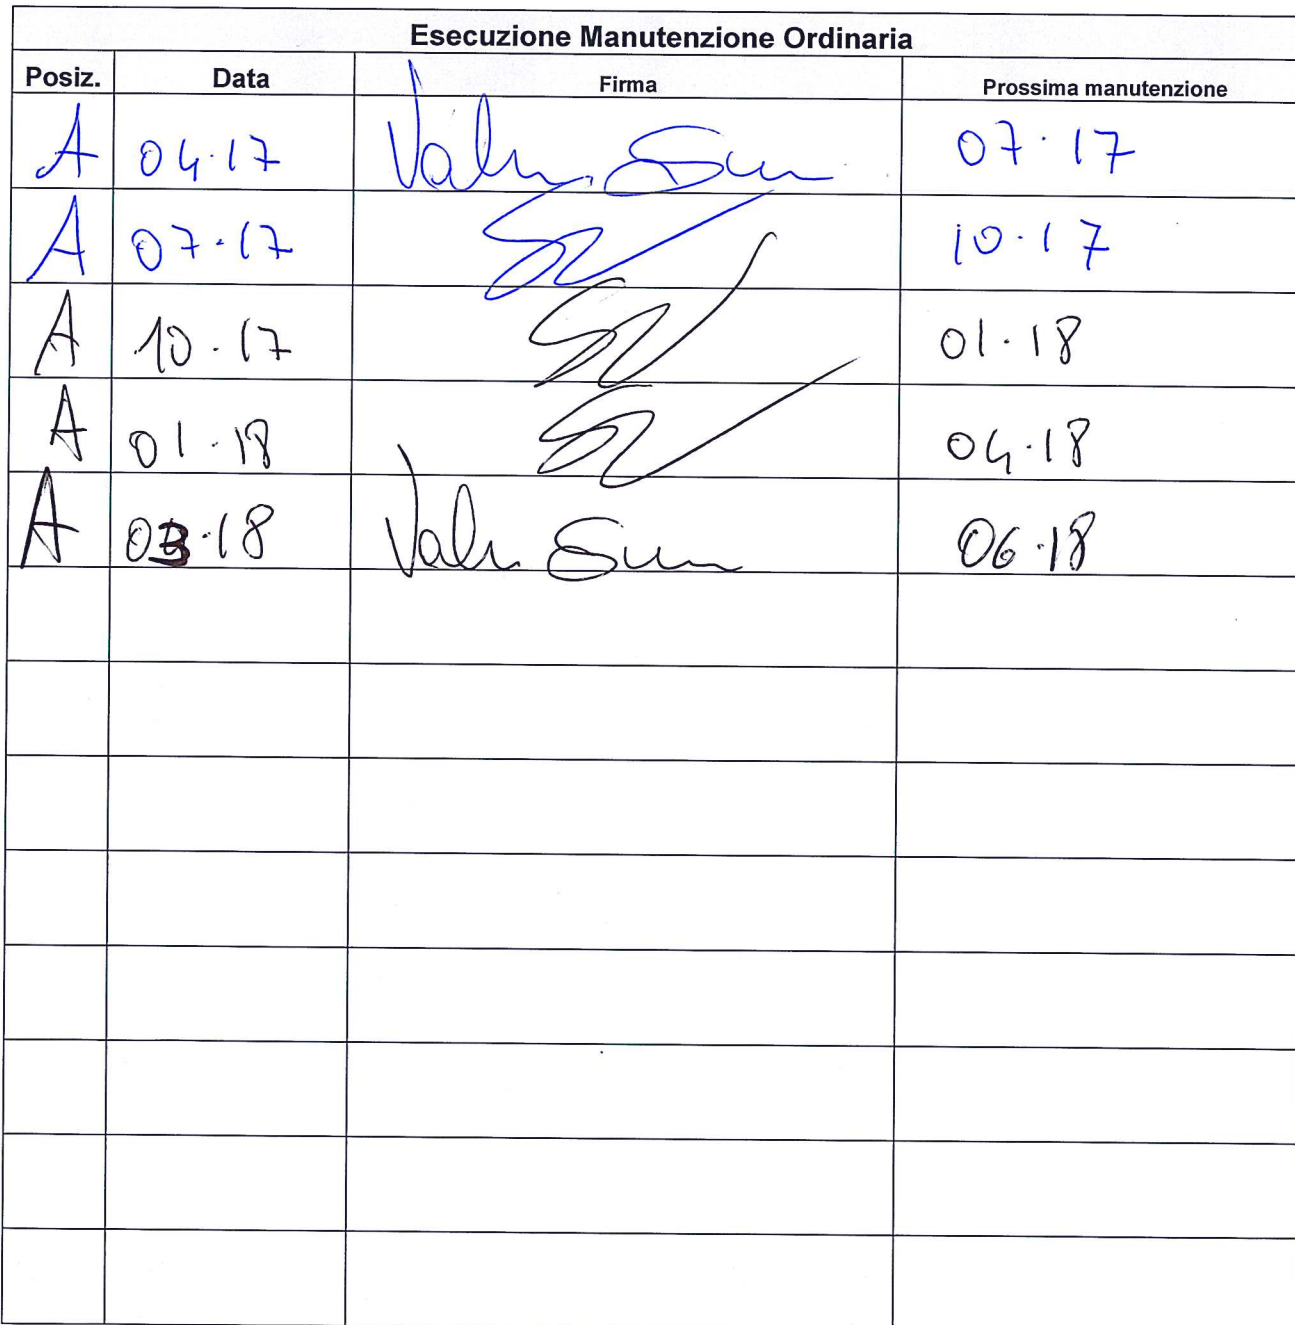 Esecuzione Manutenzione Ordinaria
Posiz. Data Firma Prossima manutenzione
A 04.17 07.17
A 07.17 10.17
A 10.17 01.18
A 01.18 04.18
A 03.18 06.18